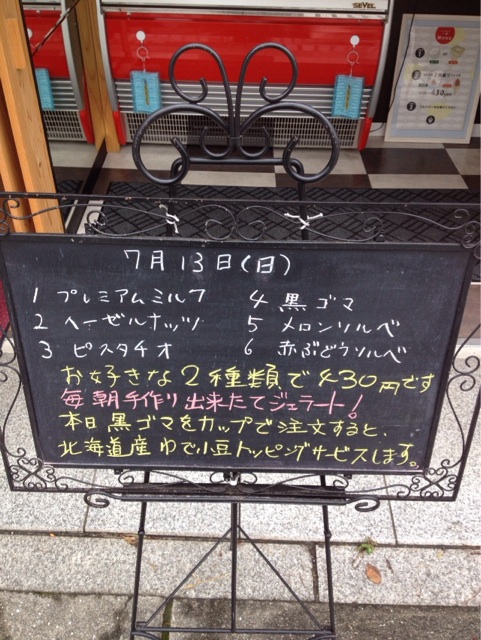 SEVEL
7月13日(日)
1 プレミアムミルク
2 ヘーゼルナッツ
3 ピスタチオ
4 黒ゴマ
5 メロンソルベ
6 赤ぶどうソルベ
お好きな2種類で430円です
毎朝手作り出来たてジェラート!
本日黒ゴマをカップで注文すると、
北海道産ゆで小豆トッピングサービスします。